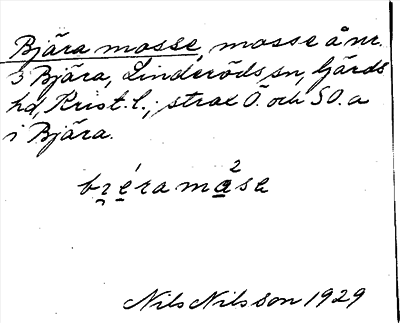 Bjära mosse, mosse å nr.
3 Bjära, Linderöds sn, Gärds
hd, Krist. l.; strax Ö. och SO. a
i Bjära.
Nils Nilsson 1929